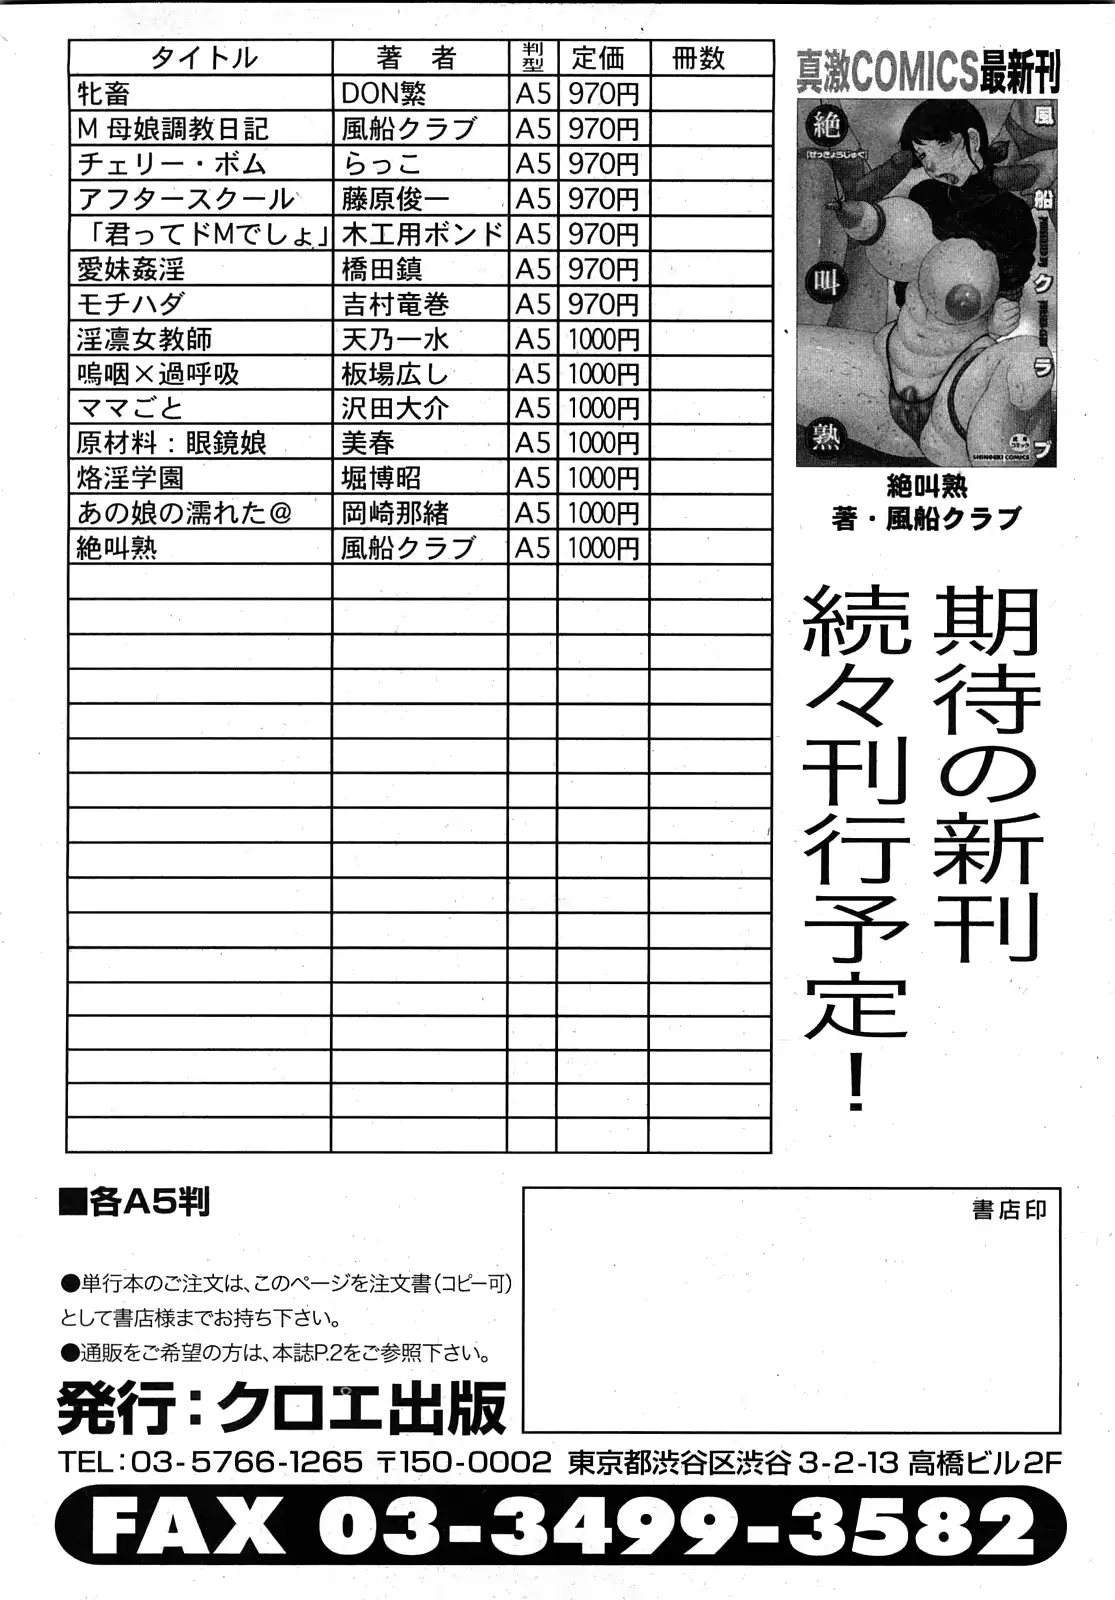 タイトル 著者 判型 定価 冊数
牝畜 DON繁 A5 970円
M母娘調教日記 風船クラブ A5 970円
チェリー・ボム らっこ A5 970円
アフタースクール 藤原俊一 A5 970円
「君ってドMでしょ」 木工用ボンド A5 970円
愛妹姦淫 橋田鎮 A5 970円
モチハダ 吉村竜巻 A5 970円
淫凛女教師 天乃一水 A5 1000円
嗚咽×過呼吸 板場広し A5 1000円
ママごと 沢田大介 A5 1000円
原材料：眼鏡娘 美春 A5 1000円
烙淫学園 堀博昭 A5 1000円
あの娘の濡れた@ 岡崎那緒 A5 1000円
絶叫熟 風船クラブ A5 1000円
真激COMICS最新刊
絶叫熟
[ぜっきょうじゅく]
風船クラブ
成年コミック
SHINGEKI COMICS
絶叫熟
著・風船クラブ
期待の新刊
続々刊行予定！
■各A5判
●単行本のご注文は、このページを注文書（コピー可）
として書店様までお持ち下さい。
●通販をご希望の方は、本誌P.2をご参照下さい。
書店印
発行：クロエ出版
TEL：03-5766-1265 〒150-0002 東京都渋谷区渋谷3-2-13 高橋ビル2F
FAX 03-3499-3582